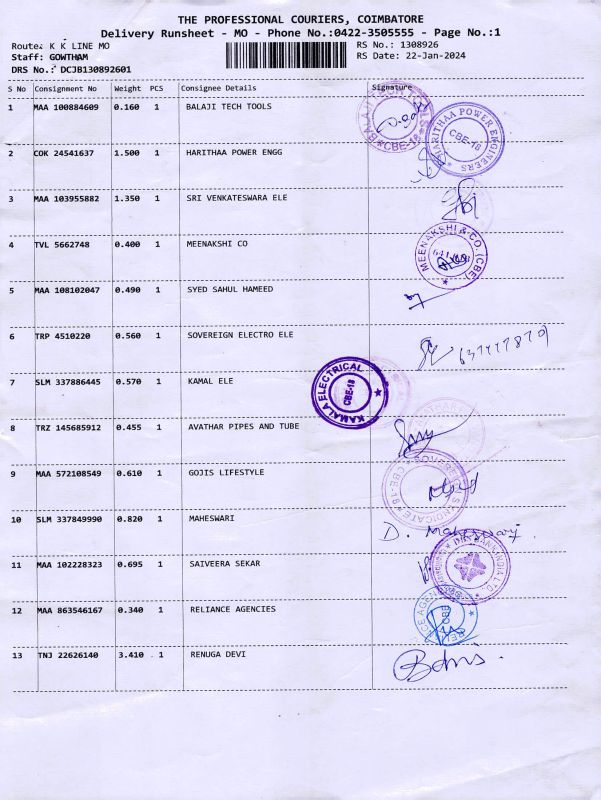 THE PROFESSIONAL COURIERS, COIMBATORE
Delivery Runsheet - MO - Phone No.:0422-3505555 - Page No.:1
Route: K K LINE MO
RS No.: 1308926
Staff: GOWTHAM
RS Date: 22-Jan-2024
DRS No.: DCJB130892601
S No Consignment No Weight PCS Consignee Details Signature
1 MAA 100884609 0.160 1 BALAJI TECH TOOLS
CBE-18
HARITHAA POWER ENGINEERS
CBE-18
2 COK 24541637 1.500 1 HARITHAA POWER ENGG
3 MAA 103955882 1.350 1 SRI VENKATESWARA ELE
4 TVL 5662748 0.400 1 MEENAKSHI CO
MEENAKSHI & CO. (CBE)
5 MAA 108102047 0.490 1 SYED SAHUL HAMEED
6 TRP 4510220 0.560 1 SOVEREIGN ELECTRO ELE
7 SLM 337886445 0.570 1 KAMAL ELE
KAMALA ELECTRICAL
CBE-18
8 TRZ 145685912 0.455 1 AVATHAR PIPES AND TUBE
9 MAA 572108549 0.610 1 GOJIS LIFESTYLE
10 SLM 337849990 0.820 1 MAHESWARI
D. Maheswari.
11 MAA 102228323 0.695 1 SAIVEERA SEKAR
12 MAA 863546167 0.340 1 RELIANCE AGENCIES
13 TNJ 22626140 3.410 1 RENUGA DEVI